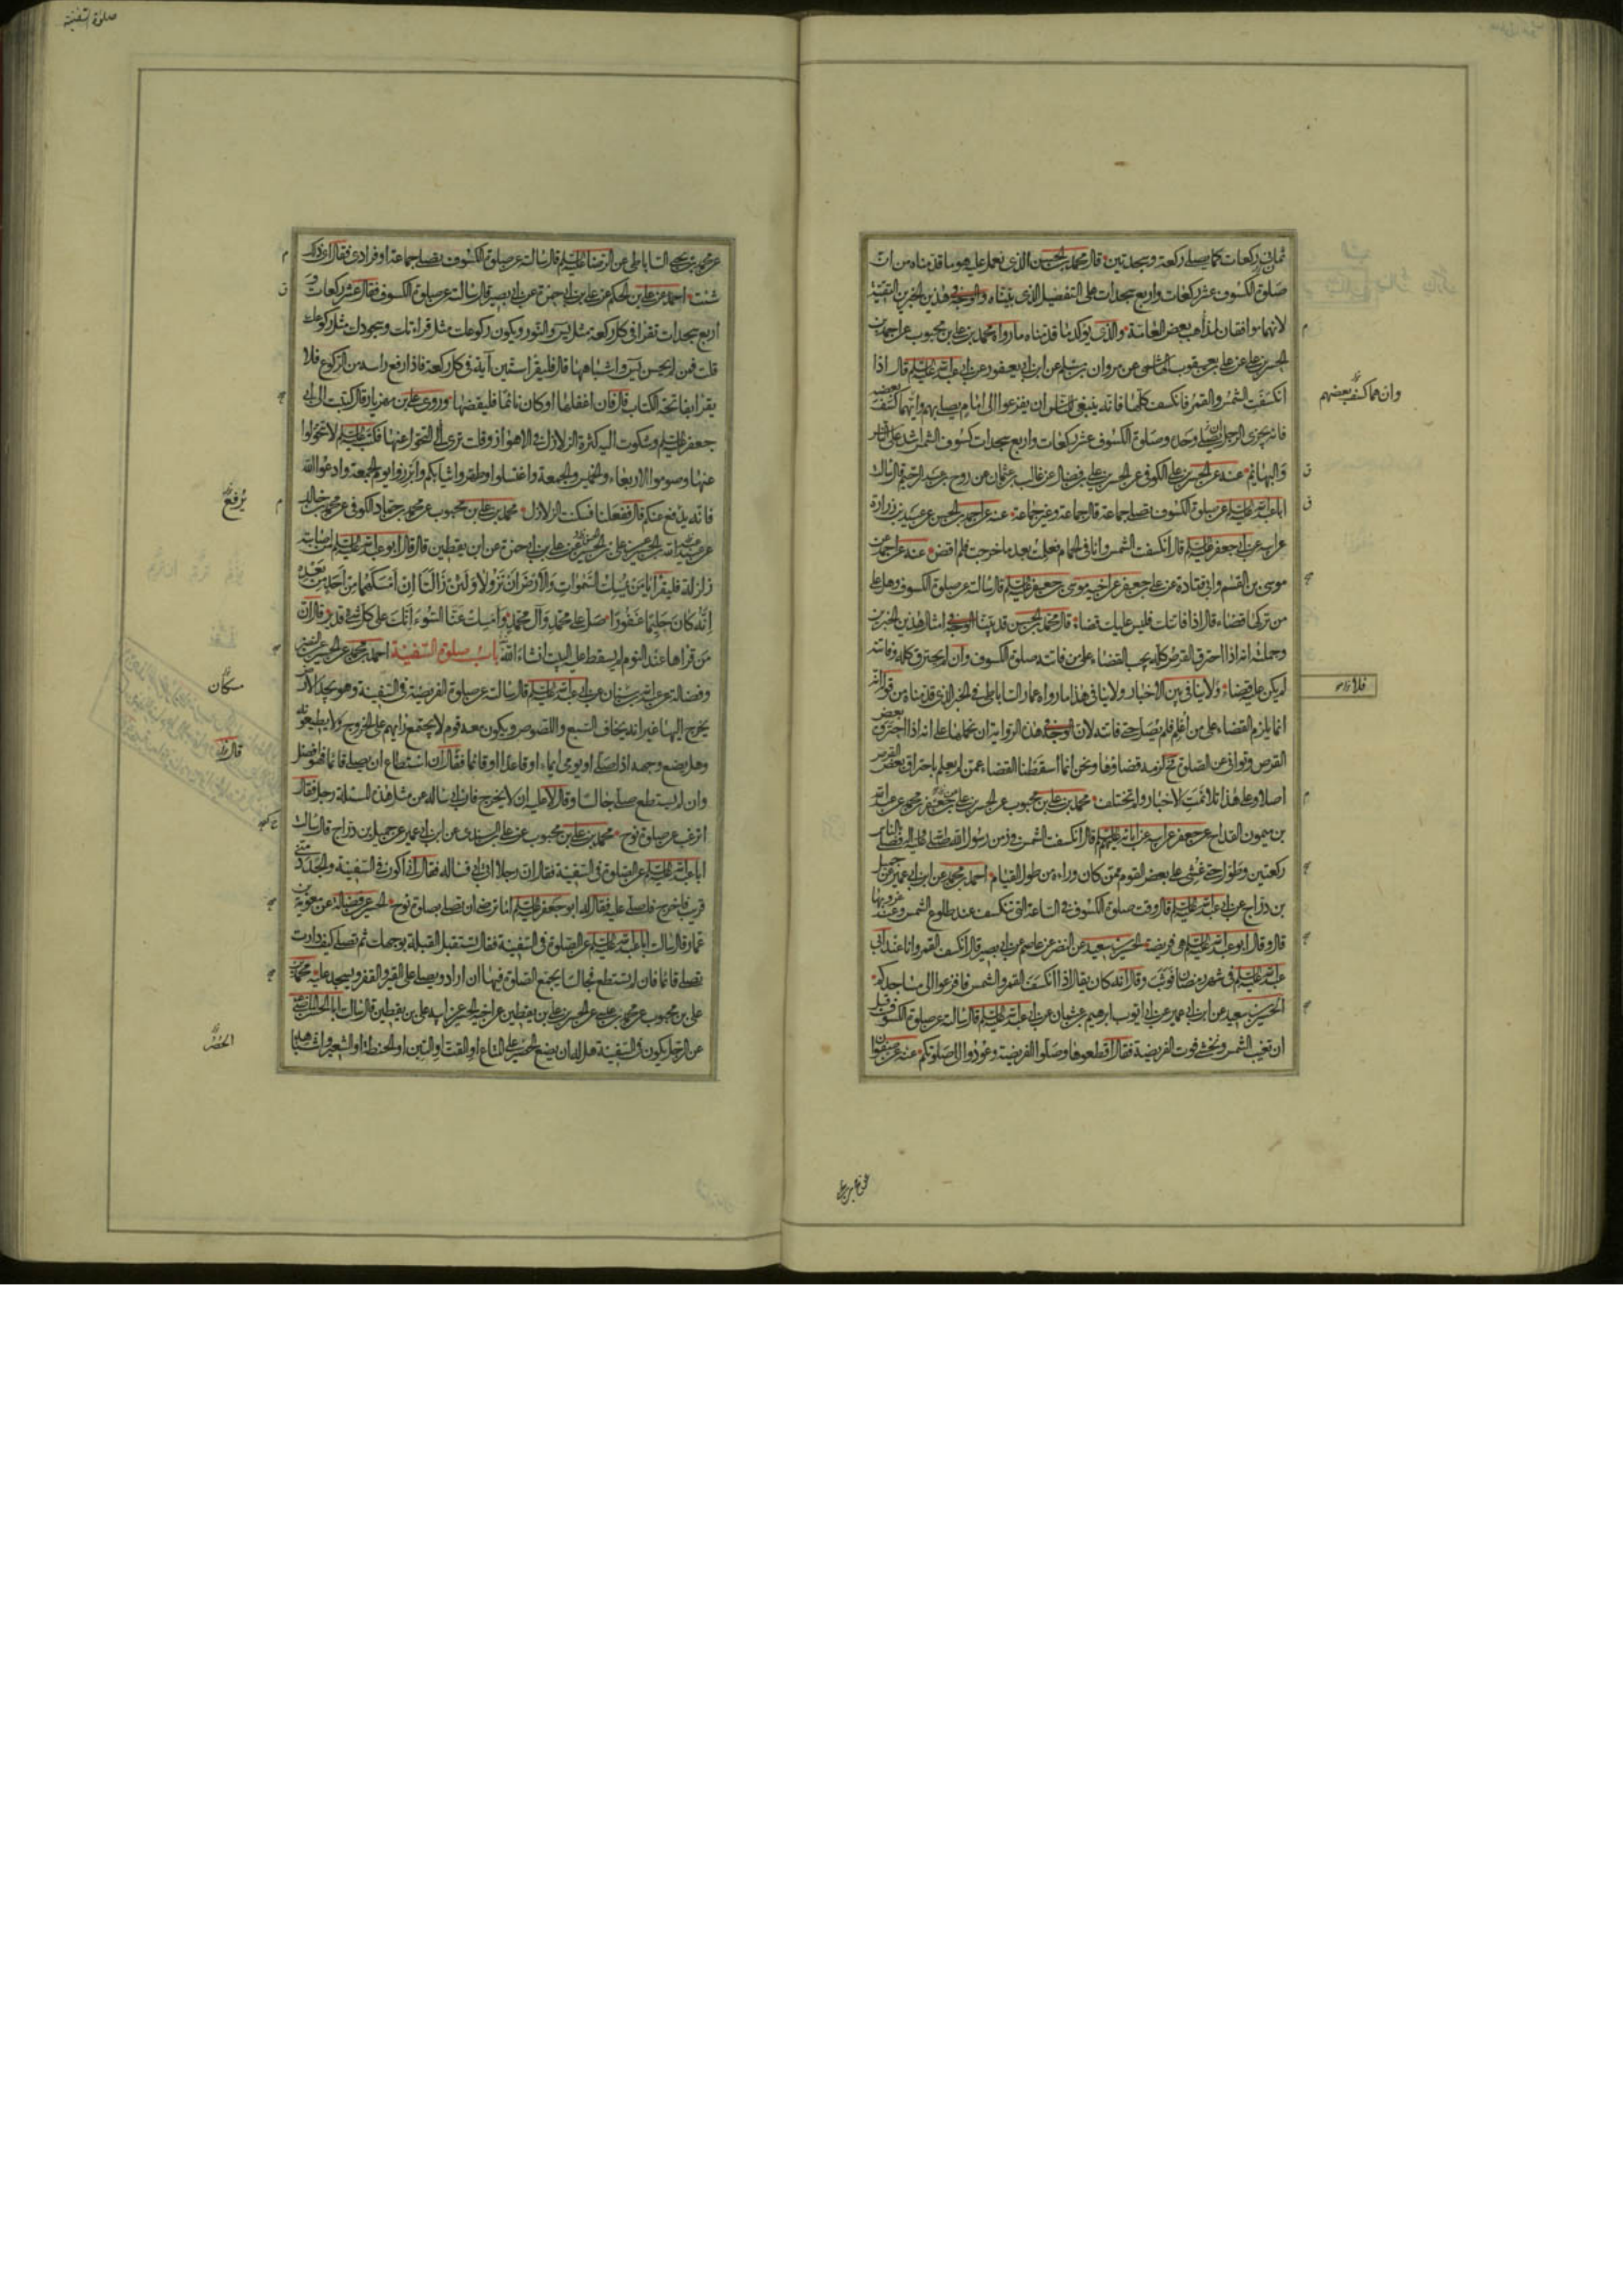 ثمان ركعات كما يصلى ركعة وسجدتين قال محمد بن الحسن الذى نعمل عليه هو ما قدمناه من ان
صلوة الكسوف عشر ركعات واربع سجدات على التفصيل الذى بيناه والوجه فى هذين الخبرين التقية
لانهما موافقان لمذاهب بعض العامة والذى يؤكد ما قدمناه ما رواه محمد بن على بن محبوب عن احمد بن
الحسن عن على بن يعقوب الهاشمى عن مروان بن مسلم عن ابن ابى يعفور عن ابى عبد الله عليه السلم قال اذا
انكسفت الشمس والقمر فانكسف كلها فانه ينبغى للناس ان يفزعوا الى امام يصلى بهم وايهما كسف بعضه
فانه يجزى الرجل ان يصلى وحده وصلوة الكسوف عشر ركعات واربع سجدات كسوف الشمس اشد على الناس
والبهائم عنه عن الحسن بن على الكوفى عن الحسن بن على بن فضال عن غالب بن عثمان عن روح بن عبد الرحيم قال سالت
ابا عبد الله عليه السلم عن صلوة الكسوف تصلى جماعة قال جماعة وغير جماعة عنه عن احمد بن الحسن عن عبيد بن زرارة
عن ابيه عن ابى جعفر عليه السلم قال انكسفت الشمس وانا فى الحمام فعلمت بعد ما خرجت فلم اقض عنه عن احمد عن
موسى بن القسم وابى قتادة عن على بن جعفر عن اخيه موسى بن جعفر عليه السلم قال سالته عن صلوة الكسوف وهل على
من تركها قضاء قال اذا فاتتك فليس عليك قضاء قال محمد بن الحسن قد بينا الوجه فى امثال هذين الخبرين
وجملته انه اذا احترق القرص كله يجب القضاء على من فاتته صلوة الكسوف وان لم يحترق كله وفاتته
لم يكن عليه قضاء ولا ينافى بين الاخبار ولا ينافى هذا ما رواه عمار الساباطى فى الخبر الذى قدمناه من قوله انه
انما يلزم القضاء على من اعلم فلم يصل حتى فاتته لان الوجه فى هذه الرواية ان نحملها على انه اذا احترق بعض
القرص وتوانى عن الصلوة فح لزمه قضاؤها ونحن انما اسقطنا القضاء عمن لم يعلم باحتراق بعض القرص
اصلا وعلى هذا تلائمت الاخبار ولم تختلف محمد بن على بن محبوب عن الحسن بن على عن جعفر بن محمد عن عبد الله
بن ميمون القداح عن جعفر عن ابيه عن ابائه عليهم السلم قال انكسفت الشمس فى زمن رسول الله صلى الله عليه واله فصلى بالناس
ركعتين وطول حتى غشى على بعض القوم ممن كان وراءه من طول القيام احمد بن محمد عن ابن ابى عمير عن جميل
بن دراج عن ابى عبد الله عليه السلم قال وقت صلوة الكسوف فى الساعة التى تنكسف عند طلوع الشمس وعند غروبها
قال وقال ابو عبد الله عليه السلم هى فريضة الحسين بن سعيد عن النضر عن عاصم عن ابى بصير قال انكسف القمر وانا عند ابى
عبد الله عليه السلم فى شهر رمضان فوثب وقال انه كان يقال اذا انكسف القمر والشمس فافزعوا الى مساجدكم
الحسين بن سعيد عن ابن ابى عمير عن ابى ايوب ابرهيم بن عثمان عن ابى عبد الله عليه السلم قال سالته عن صلوة الكسوف قبل
ان تغيب الشمس ونخشى فوت الفريضة فقال اقطعوها وصلوا الفريضة وعودوا الى صلوتكم عنه عن صفوان
وان هما كسف بعضهم
صلوة السفينة
عن محمد بن يحيى الساباطى عن الرضا عليه السلم قال سالته عن صلوة الكسوف تصلى جماعة او فرادى فقال اى ذلك
شئت احمد عن على بن الحكم عن على بن ابى حمزة عن ابى بصير قال سالته عن صلوة الكسوف فقال عشر ركعات و
اربع سجدات تقرا فى كل ركعة مثل يس والنور ويكون ركوعك مثل قراءتك وسجودك مثل ركوعك
قلت فمن لم يحسن يس واشباهها قال فليقرا ستين آية فى كل ركعة فاذا رفع راسه من الركوع فلا
يقرا بفاتحة الكتاب قال فان اغفلها او كان نائما فليقضها وروى على بن مهزيار قال كتبت الى ابى
جعفر عليه السلم وشكوت اليه كثرة الزلازل فى الاهواز وقلت ترى لى التحول عنها فكتب عليه السلم لا تتحولوا
عنها وصوموا الاربعاء والخميس والجمعة واغتسلوا وطهروا ثيابكم وابرزوا يوم الجمعة وادعوا الله
فانه يدفع عنكم قال ففعلنا فسكنت الزلازل محمد بن على بن محبوب عن محمد بن حماد الكوفى عن محمد بن خالد
عن عبيد الله بن الحسين عن على بن الحسين عن على بن ابى حمزة عن ابن يقطين قال قال ابو عبد الله عليه السلم من اصابته
زلزلة فليقرا يا من يمسك السموات والارض ان تزولا ولئن زالتا ان امسكهما من احد من بعده
انه كان حليما غفورا صل على محمد وآل محمد وامسك عنا السوء انك على كل شىء قدير قال ان
من قراها عند النوم لم يسقط عليه البيت انشاء الله باب صلوة السفينة احمد بن محمد عن الحسين عن النضر
وفضالة عن عبد الله بن سنان عن ابى عبد الله عليه السلم قال سالته عن صلوة الفريضة فى السفينة وهو يجد الارض
يخرج اليها غير انه يخاف السبع واللصوص ويكون معه قوم لا يجتمع رايهم على الخروج ولا يطيعونه
وهل يضع وجهه اذا صلى او يومى ايماء او قاعدا او قائما فقال ان استطاع ان يصلى قائما فهو افضل
وان لم يستطع صلى جالسا وقال لا عليه ان لا يخرج فان ابى ساله عن مثل هذه المسئلة رجل فقال
اترغب عن صلوة نوح محمد بن على بن محبوب عن على بن السندى عن ابن ابى عمير عن جميل بن دراج قال سالت
ابا عبد الله عليه السلم عن الصلوة فى السفينة فقال ان رجلا اتى ابى فساله فقال انى اكون فى السفينة والجدد منى
قريب فاخرج فاصلى عليه فقال له ابو جعفر عليه السلم اما ترضى ان تصلى بصلوة نوح الحسين عن فضالة عن معوية بن
عمار قال سالت ابا عبد الله عليه السلم عن الصلوة فى السفينة فقال تستقبل القبلة بوجهك ثم تصلى كيف دارت
تصلى قائما فان لم تستطع فجالسا يجمع الصلوة فيها ان اراد ويصلى على القير والقفر ويسجد عليه محمد بن
على بن محبوب عن محمد بن على عن الحسن بن على بن يقطين عن اخيه الحسين عن ابيه على بن يقطين قال سالت ابا الحسن الماضى
عن الرجل يكون فى السفينة هل له ان يضع الحصير على المتاع او القت او التبن او الحنطة او الشعير واشباهه
يرفع
سكان
قال
الحصر